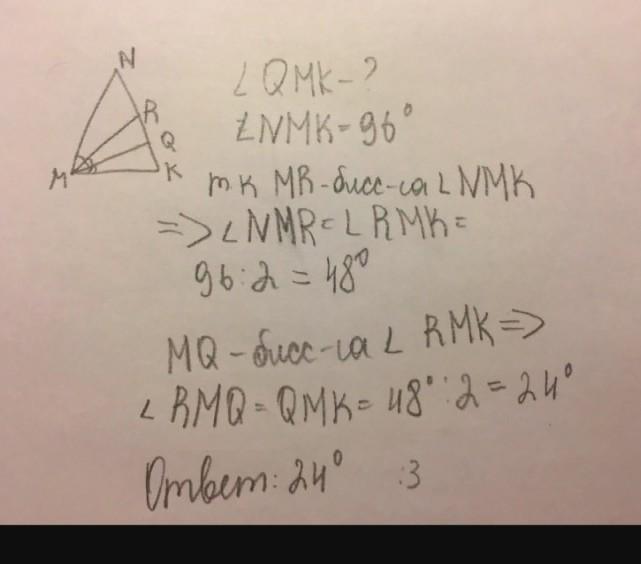 N
R
Q
M
K
∠QMK-?
∠NMK=96°
тк MR-бисс-са ∠NMK
=> ∠NMR=∠RMK=
96:2=48°
MQ-бисс-са ∠ RMK=>
∠RMQ=QMK=48°:2=24°
Ответ: 24° :3